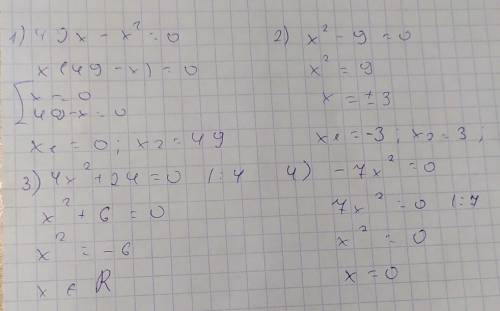 1) 49x - x² = 0
x(49 - x) = 0
x = 0
49 - x = 0
x₁ = 0; x₂ = 49
2) x² - 9 = 0
x² = 9
x = ±3
x₁ = -3; x₂ = 3;
3) 4x² + 24 = 0 |:4
x² + 6 = 0
x² = -6
x ∈ R
4) -7x² = 0
7x² = 0 |:7
x² = 0
x = 0